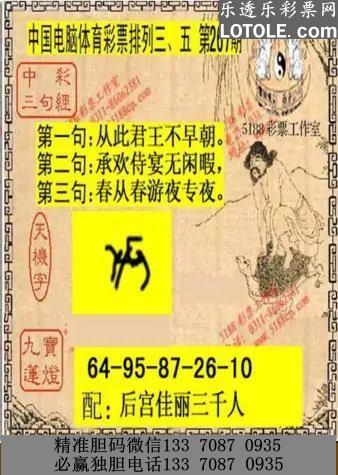 乐透乐彩票网
WWW.LOTOLE.COM
中国电脑体育彩票排列三、五 第267期
中彩
三句經
5188彩票工作室
第一句:从此君王不早朝。
第二句:承欢侍宴无闲暇,
第三句:春从春游夜专夜。
天機字
九寶蓮燈
64-95-87-26-10
配:后宫佳丽三千人
精准胆码微信133 7087 0935
必赢独胆电话133 7087 0935